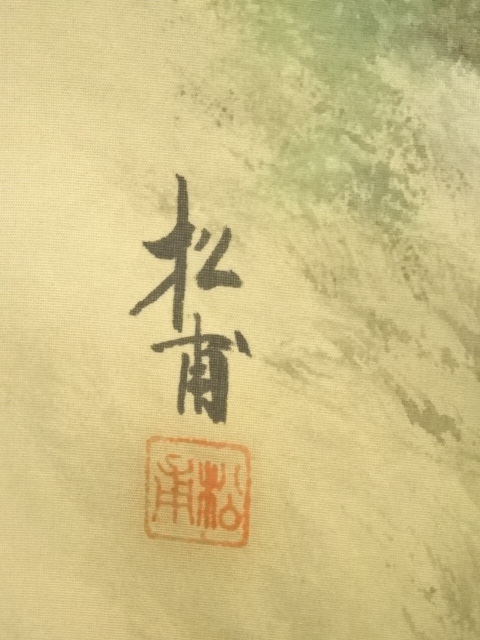 松甫
松甫